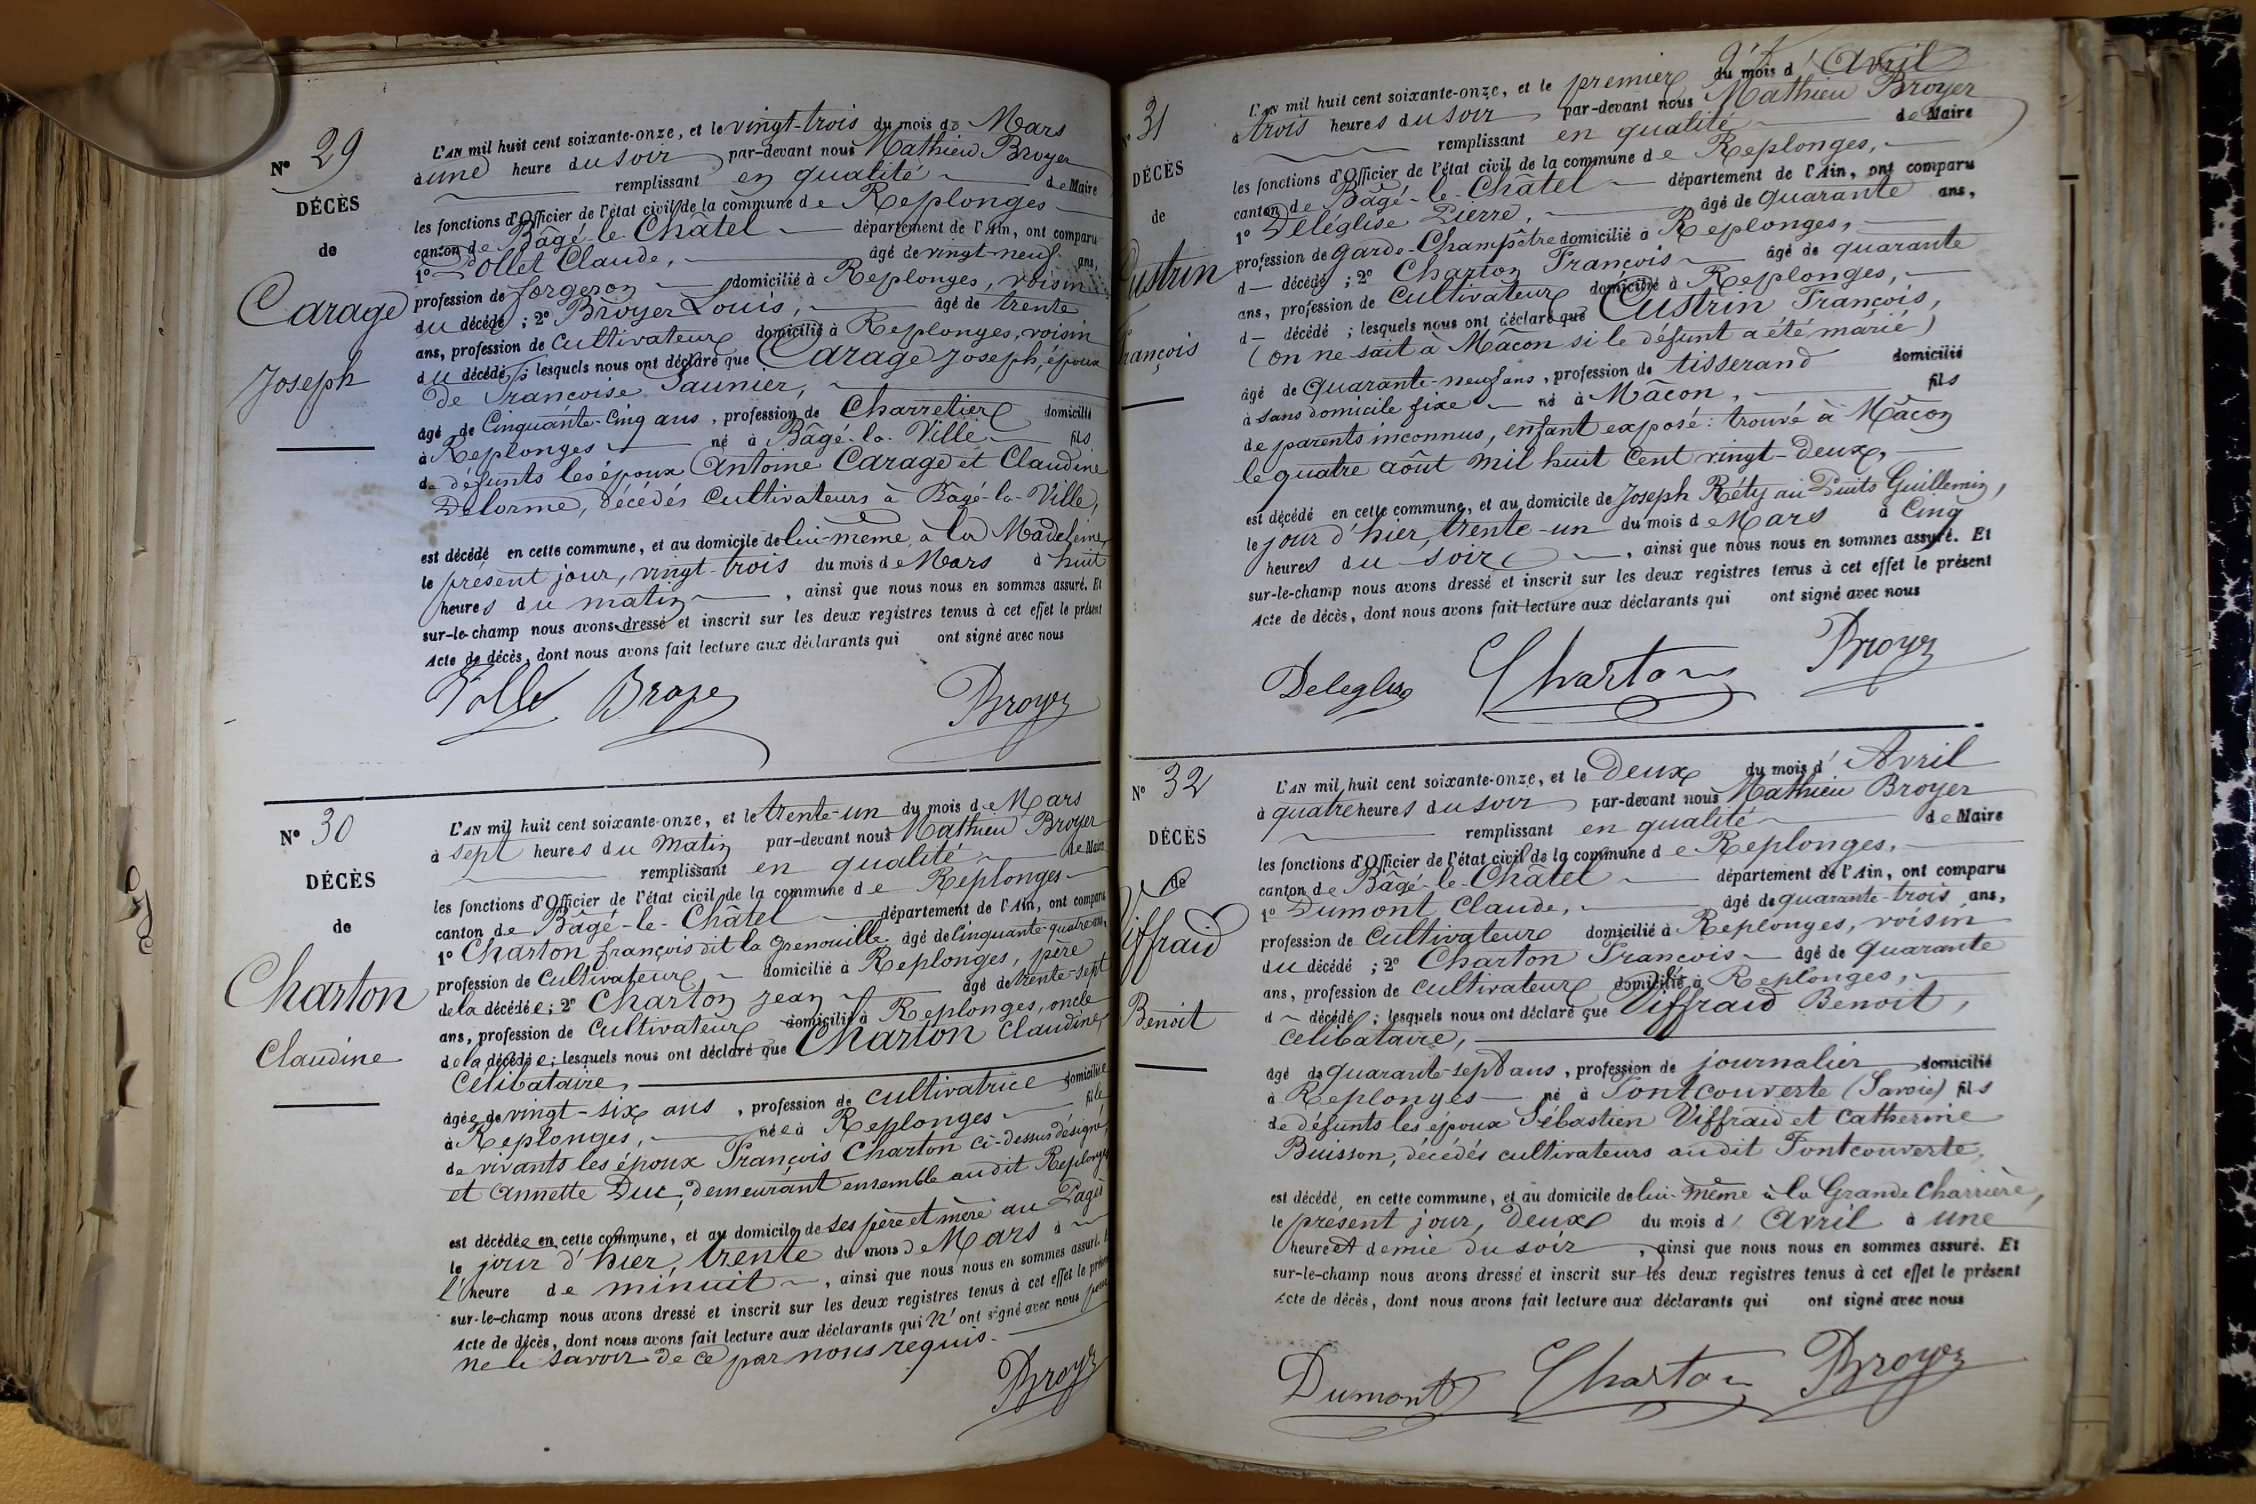 N° 29
DÉCÈS
de
Carage
Joseph
L'AN mil huit cent soixante-onze, et le vingt-trois du mois de Mars
à une heure du soir par-devant nous Mathieu Broyer
remplissant en qualité de Maire
les fonctions d'Officier de l'état civil de la commune de Replonges
canton de Bâgé-le-Châtel département de l'Ain, ont comparu
1° Pollet Claude, âgé de vingt-neuf ans,
profession de forgeron domicilié à Replonges, voisin
du décédé ; 2° Broyer Louis, âgé de trente
ans, profession de cultivateur domicilié à Replonges, voisin
du décédé ; lesquels nous ont déclaré que Carage Joseph, époux
de Françoise Saunier,
âgé de Cinquante-Cinq ans, profession de Charretier domicilié
à Replonges né à Bâgé-la-Ville fils
de défunts les époux Antoine Carage et Claudine
Delorme, décédés cultivateurs à Bâgé-la-Ville,
est décédé en cette commune, et au domicile de lui-même, à la Madeleine,
le présent jour, vingt-trois du mois de Mars à huit
heures du matin, ainsi que nous nous en sommes assuré. Et
sur-le-champ nous avons dressé et inscrit sur les deux registres tenus à cet effet le présent
Acte de décès, dont nous avons fait lecture aux déclarants qui ont signé avec nous
Pollet Broyer Broyer
N° 30
DÉCÈS
de
Charton
Claudine
L'AN mil huit cent soixante-onze, et le trente-un du mois de Mars
à sept heures du matin par-devant nous Mathieu Broyer
remplissant en qualité de Maire
les fonctions d'Officier de l'état civil de la commune de Replonges
canton de Bâgé-le-Châtel département de l'Ain, ont comparu
1° Charton françois dit la Grenouille âgé de Cinquante-quatre ans,
profession de cultivateur domicilié à Replonges, père
de la décédée ; 2° Charton Jean âgé de trente-sept
ans, profession de cultivateur domicilié à Replonges, oncle
de la décédée ; lesquels nous ont déclaré que Charton Claudine,
Célibataire,
âgée de vingt-six ans, profession de cultivatrice domiciliée
à Replonges, née à Replonges fille
de vivants les époux François Charton ci-dessus désigné,
et Annette Duc, demeurant ensemble audit Replonges
est décédée en cette commune, et au domicile de ses père et mère au Pagès
le jour d'hier, trente du mois de Mars à
l'heure de minuit, ainsi que nous nous en sommes assuré. Et
sur-le-champ nous avons dressé et inscrit sur les deux registres tenus à cet effet le présent
Acte de décès, dont nous avons fait lecture aux déclarants qui n'ont signé avec nous pour
ne le savoir de ce par nous requis.
Broyer
31
DÉCÈS
de
Custrin
François
L'AN mil huit cent soixante-onze, et le premier du mois d'Avril
à trois heures du soir par-devant nous Mathieu Broyer
remplissant en qualité de Maire
les fonctions d'Officier de l'état civil de la commune de Replonges,
canton de Bâgé-le-Châtel département de l'Ain, ont comparu
1° Deléglise Pierre, âgé de quarante ans,
profession de garde-Champêtre domicilié à Replonges,
d décédé ; 2° Charton François âgé de quarante
ans, profession de cultivateur domicilié à Replonges,
d décédé ; lesquels nous ont déclaré que Custrin François,
(on ne sait à Mâcon si le défunt a été marié)
âgé de quarante-neuf ans, profession de tisserand domicilié
à sans domicile fixe né à Mâcon, fils
de parents inconnus, enfant exposé : trouvé à Mâcon
le quatre août mil huit cent vingt-deux,
est décédé en cette commune, et au domicile de Joseph Réty au Puits Guillemin,
le jour d'hier, trente-un du mois de Mars à Cinq
heures du soir, ainsi que nous nous en sommes assuré. Et
sur-le-champ nous avons dressé et inscrit sur les deux registres tenus à cet effet le présent
Acte de décès, dont nous avons fait lecture aux déclarants qui ont signé avec nous
Deleglise Charton Broyer
N° 32
DÉCÈS
de
Viffraid
Benoit
L'AN mil huit cent soixante-onze, et le Deux du mois d'Avril
à quatre heures du soir par-devant nous Mathieu Broyer
remplissant en qualité de Maire
les fonctions d'Officier de l'état civil de la commune de Replonges,
canton de Bâgé-le-Châtel département de l'Ain, ont comparu
1° Dumont Claude, âgé de quarante-trois ans,
profession de Cultivateur domicilié à Replonges, voisin
du décédé ; 2° Charton François âgé de quarante
ans, profession de cultivateur domicilié à Replonges,
d décédé ; lesquels nous ont déclaré que Viffraid Benoit,
célibataire,
âgé de quarante-sept ans, profession de journalier domicilié
à Replonges né à Fontcouverte (Savoie) fils
de défunts les époux Sébastien Viffraid et Catherine
Buisson, décédés cultivateurs audit Fontcouverte,
est décédé en cette commune, et au domicile de lui-même à la Grande Charrière,
le présent jour, deux du mois d'Avril à une
heure et demie du soir, ainsi que nous nous en sommes assuré. Et
sur-le-champ nous avons dressé et inscrit sur les deux registres tenus à cet effet le présent
Acte de décès, dont nous avons fait lecture aux déclarants qui ont signé avec nous
Dumont Charton Broyer